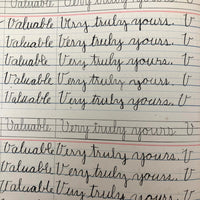 Valuable Very truly yours. V
Valuable Very truly yours. V
Valuable Very truly yours. V
Valuable Very truly yours. V
Valuable Very truly yours. V
Valuable Very truly yours V
Valuable Very truly yours. V
Valuable Very truly yours. V
Valuable Very truly yours. V